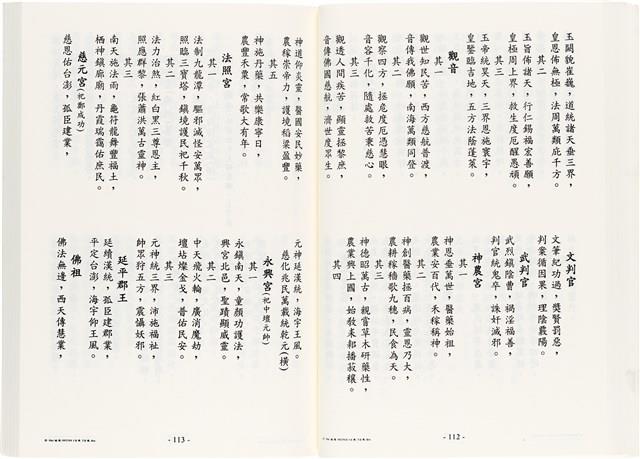 玉闕崔巍，道統諸天垂三界，
皇恩佈無極，法周萬類庇千方。
其二
玉旨佈諸天，行仁錫福宏善願，
皇極周上界，救生度厄醒愚頑。
其三
玉帝統昊天，三界恩施寰宇，
皇鑒臨吉地，五方法蔭蓬萊。
觀音
其一
觀世知民苦，西方慈航普渡，
音傳我佛願，南海萬類同登。
其二
觀察四方，拯危度厄憑慧眼，
音容千化，隨處救苦秉慈心。
其三
觀透人間疾苦，顯靈拯黎庶，
音傳佛國慈航，濟世度眾生。
文判官
文筆紀功過，獎賢罰惡，
判案燴因果，理陰襄陽。
武判官
武烈鎮陰曹，禍淫福善，
判官統鬼卒，誅奸滅邪。
神農宮
其一
神恩垂萬世，醫藥始祖，
農業安百代，禾稼稱神。
其二
神創醫藥拯百病，靈恩乃大，
農耕稼穡歌九穗，民食為天。
其三
神德昭萬古，親嘗草木研藥性，
農業興上國，始教耒耜播菽穰。
其四
- 112 -
神道仰炎靈，醫國安民妙藥，
農稼崇帝力，護境稻粱盈豐。
其五
神施丹藥，共樂康寧日，
農豐禾黍，常歌大有年。
法照宮
其一
法制九龍潭，驅邪滅怪安萬眾，
照臨三寶塔，鎮境護民祀千秋。
其二
法力治煞，紅白黑三尊恩主，
照應群黎，張蕭洪萬古靈神。
其三
南天施法雨，龜符龍舞豐福土，
栖神鎮廊廟，丹霞瑞靄佑庶民。
慈元宮(祀鄭成功)
慈恩佑台澎，孤臣建業，
元神延漢統，海宇王風。
慈化兆民萬載統乾元(橫)
永興宮(祀中壇元帥)
其一
永鎮南天，童顏功護法，
興宮北邑，聖蹟顯威靈。
其二
中天飛火輪，廣消魔劫，
壇坫燦金戈，普佑民安。
其三
元神統三界，沛施福祉，
帥眾狩五方，震懾妖邪。
延平郡王
延續漢統，孤臣建郡業，
平定台澎，海宇仰王風。
佛祖
佛法無邊，西天傳慧業，
- 113 -